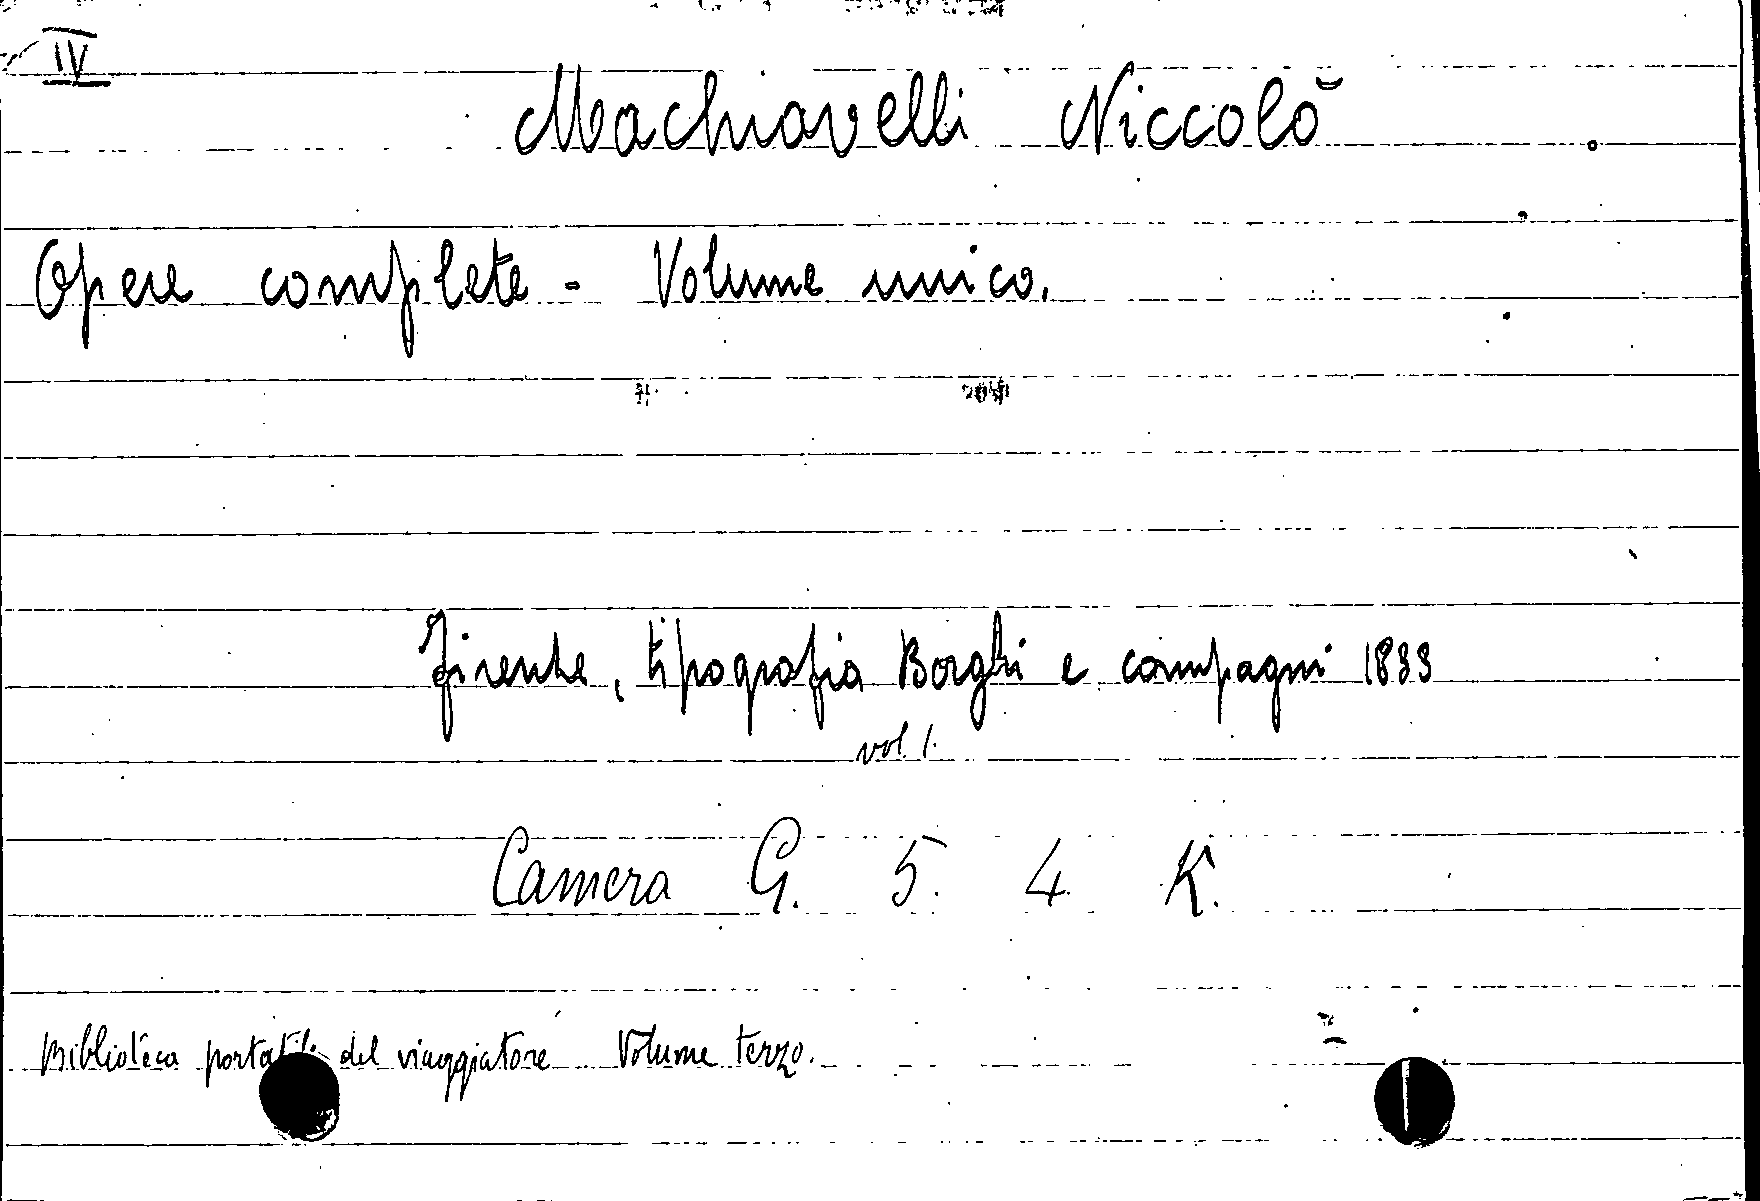 IV
Machiavelli Niccolò
Opere complete - Volume unico.
Firenze, tipografia Borghi e compagni 1833
vol. 1.
Camera G. 5. 4 K.
Biblioteca portatile del viaggiatore Volume terzo.